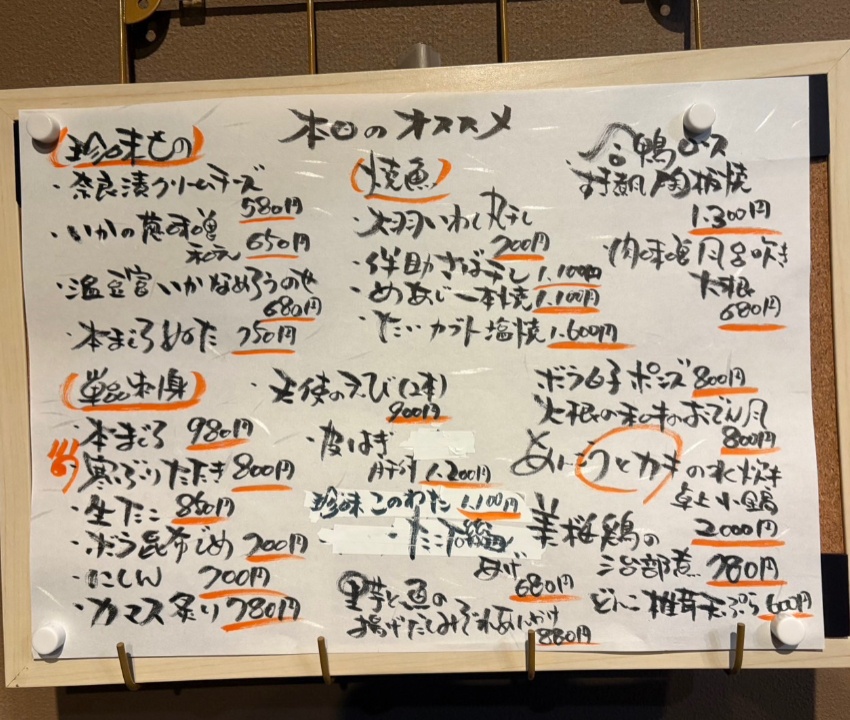 本日のオススメ
珍味もの
・奈良漬クリームチーズ
580円
・いかの蕗味噌
和えん 650円
・温豆富いかなめろうのせ
680円
・本まぐろぬた 750円
単品刺身
・本まぐろ 980円
寒ぶりたたき 800円
・生たこ 850円
・ボラ昆布じめ 700円
・にしん 700円
・カマス炙り 780円
焼魚
・大羽いわし丸干し
700円
・伴助さば干し 1.100円
・めあじ一本焼 1.100円
・たいカブト塩焼 1.600円
・天使のえび(2本)
900円
・皮はぎ
肝付 1.200円
珍味 このわた 1.100円
・たこ
あげ
680円
里芋と魚の
揚げだしみぞれあんかけ
880円
合鴨ロース
すき風陶板焼
1.300円
肉味噌風呂吹き
大根
680円
ボラ白子ポンズ 800円
大根の和牛のおでん風
800円
あんこうとカキの水炊き
卓上小鍋
2000円
美桜鶏の
治部煮 780円
どんこ椎茸天ぷら 600円